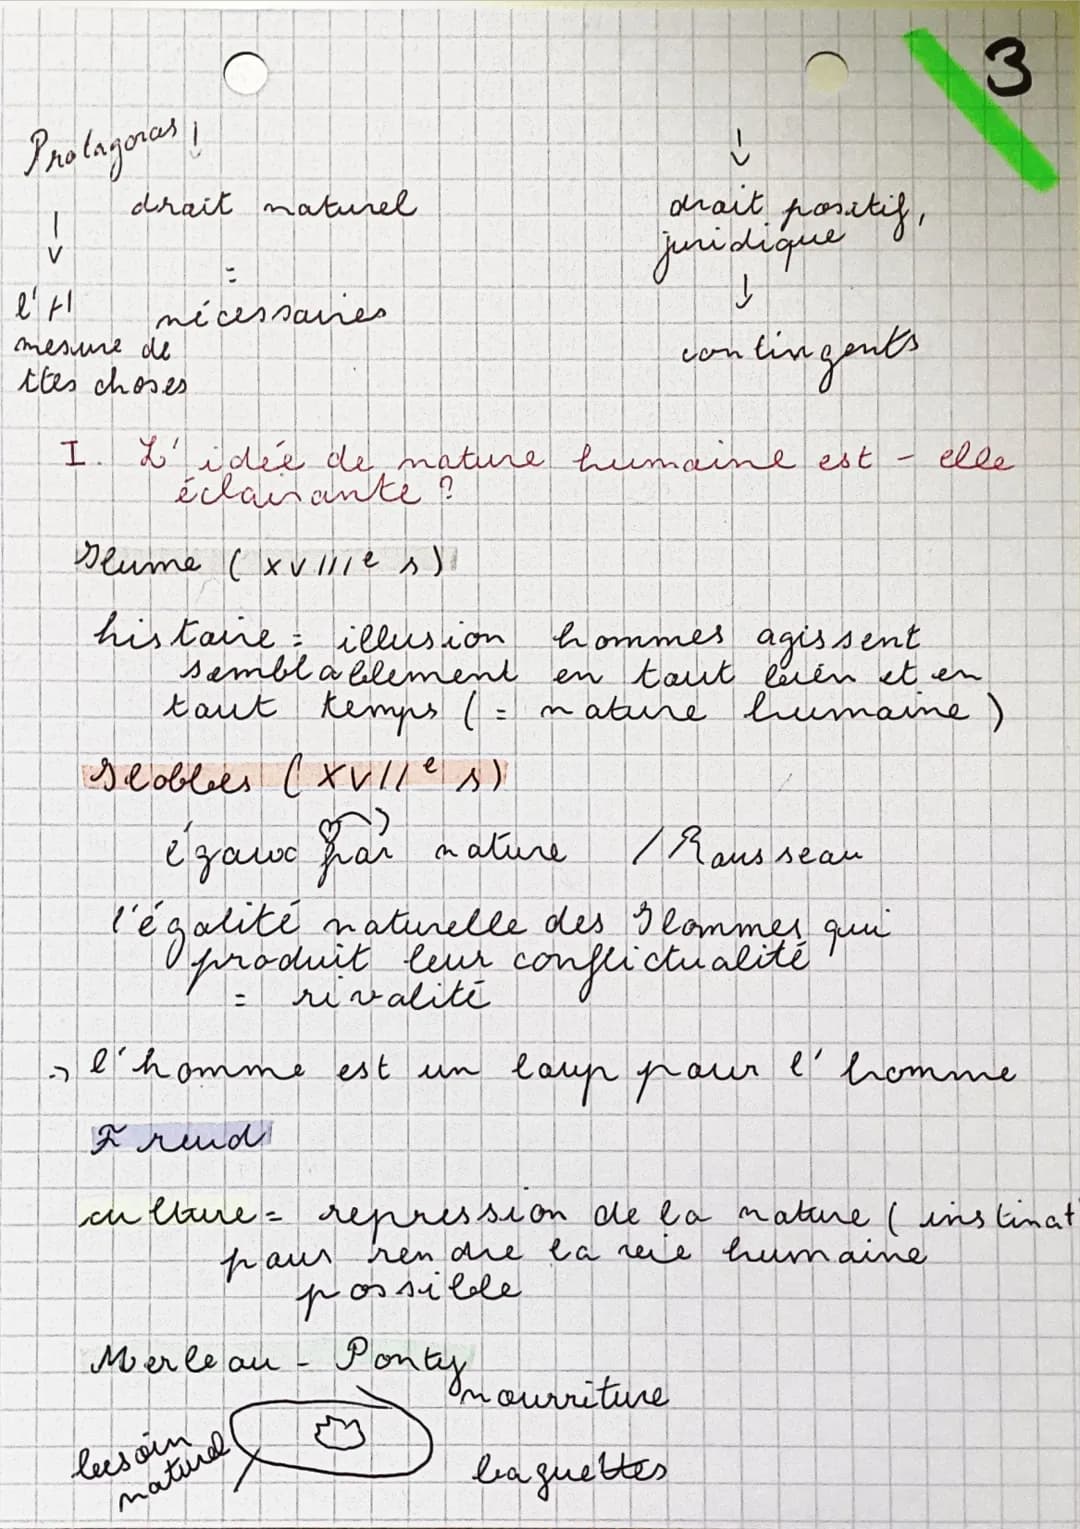 3
Protagoras
droit naturel
droit positif,
juridique
l'H
mesure de
ttes choses
=
nécessaires
contingents
I. L'idée de nature humaine est-elle
éclairante ?
Hume (XVIIIe s)
histoire = illusion hommes agissent
semblablement en tout lieu et en
tout temps (= nature humaine)
Hobbes (XVIIe s)
égaux par nature / Rousseau
l'égalité naturelle des Hommes qui
produit leur conflictualité
= rivalité
-> l'homme est un loup pour l'homme
Freud
culture = répression de la nature (instinct
pour rendre la vie humaine
possible
Merleau-Ponty
nourriture
besoin
naturel
baguettes